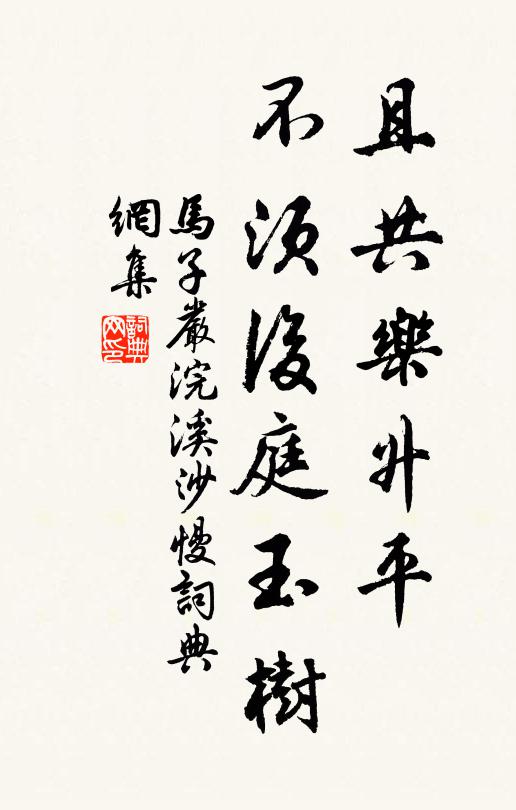 且共樂升平
不須後庭玉樹
馬子嚴浣溪沙慢詞典
網集
詞典
网印